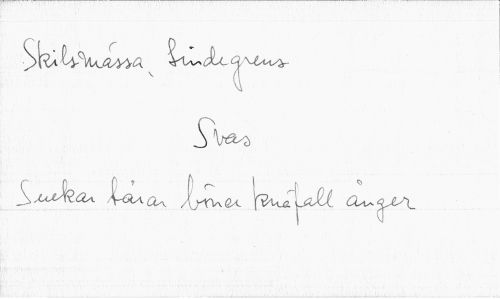 Skilsmässa, Lindegrens
Svas
Suckar tårar böner knäfall ånger